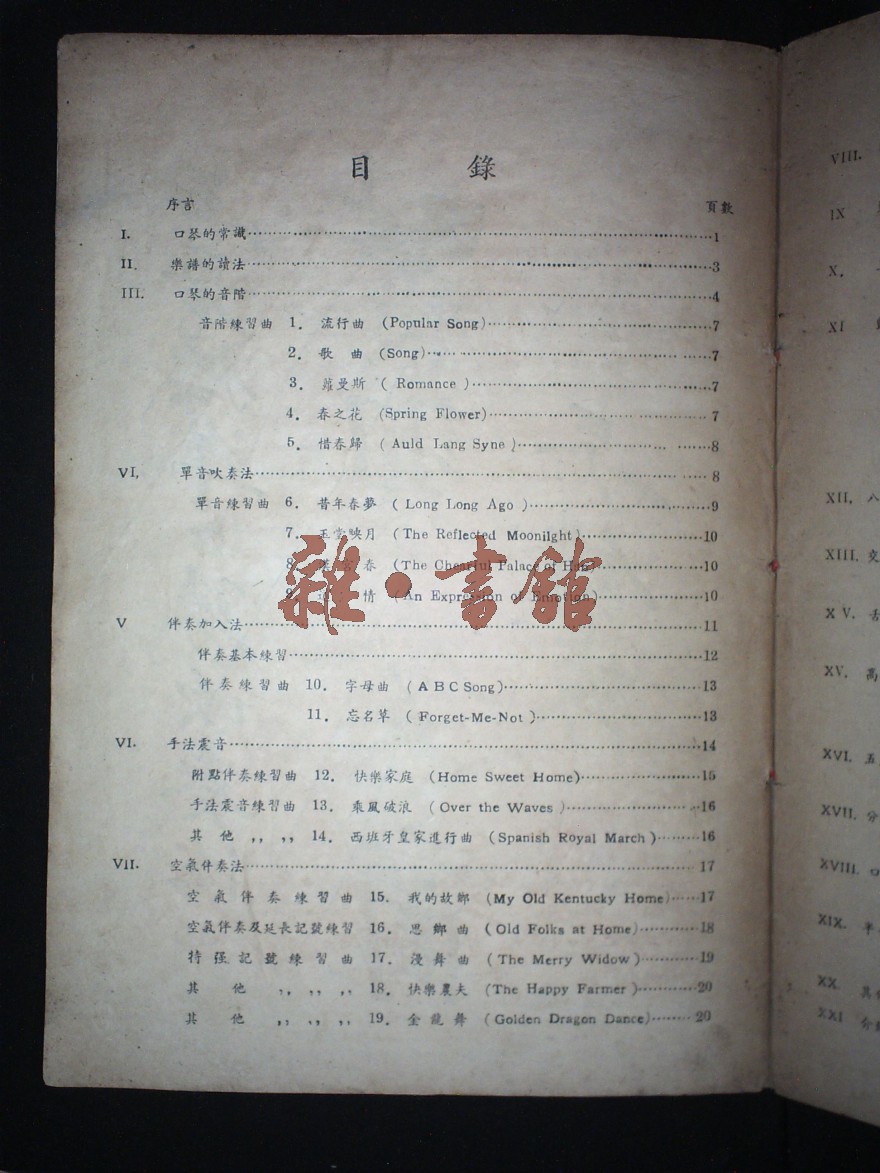 目 錄
序言 頁數
I. 口琴的常識 1
II. 樂譜的讀法 3
III. 口琴的音階 4
音階練習曲 1. 流行曲 (Popular Song) 7
2. 歌 曲 (Song) 7
3. 蘿曼斯 ( Romance ) 7
4. 春之花 (Spring Flower) 7
5. 惜春歸 ( Auld Lang Syne ) 8
VI. 單音吹奏法 8
單音練習曲 6. 昔年春夢 ( Long Long Ago ) 9
7. 玉堂映月 (The Reflected Moonilght) 10
8. 春 (The Cheerful Palace of Han) 10
9. 情 (An Expression of Emotion) 10
V 伴奏加入法 11
伴奏基本練習 12
伴奏練習曲 10. 字母曲 ( A B C Song) 13
11. 忘名草 ( Forget-Me-Not ) 13
VI. 手法震音 14
附點伴奏練習曲 12. 快樂家庭 (Home Sweet Home) 15
手法震音練習曲 13. 乘風破浪 (Over the Waves ) 16
其 他 ,, ,, 14. 西班牙皇家進行曲 (Spanish Royal March ) 16
VII. 空氣伴奏法 17
空氣伴奏練習曲 15. 我的故鄉 (My Old Kentucky Home) 17
空氣伴奏及延長記號練習 16. 思鄉曲 ( Old Folks at Home) 18
持强記號練習曲 17. 漫舞曲 ( The Merry Widow ) 19
其 他 ,, ,, ,, 18. 快樂農夫 (The Happy Farmer ) 20
其 他 ,, ,, ,, 19. 金龍舞 ( Golden Dragon Dance) 20
雜·書館
VIII.
IX
X.
XI
XII. 八
XIII. 交
X V. 舌
XV. 高
XVI. 五
XVII. 分
XVIII. 口
XIX. 半
XX. 其
XXI 介